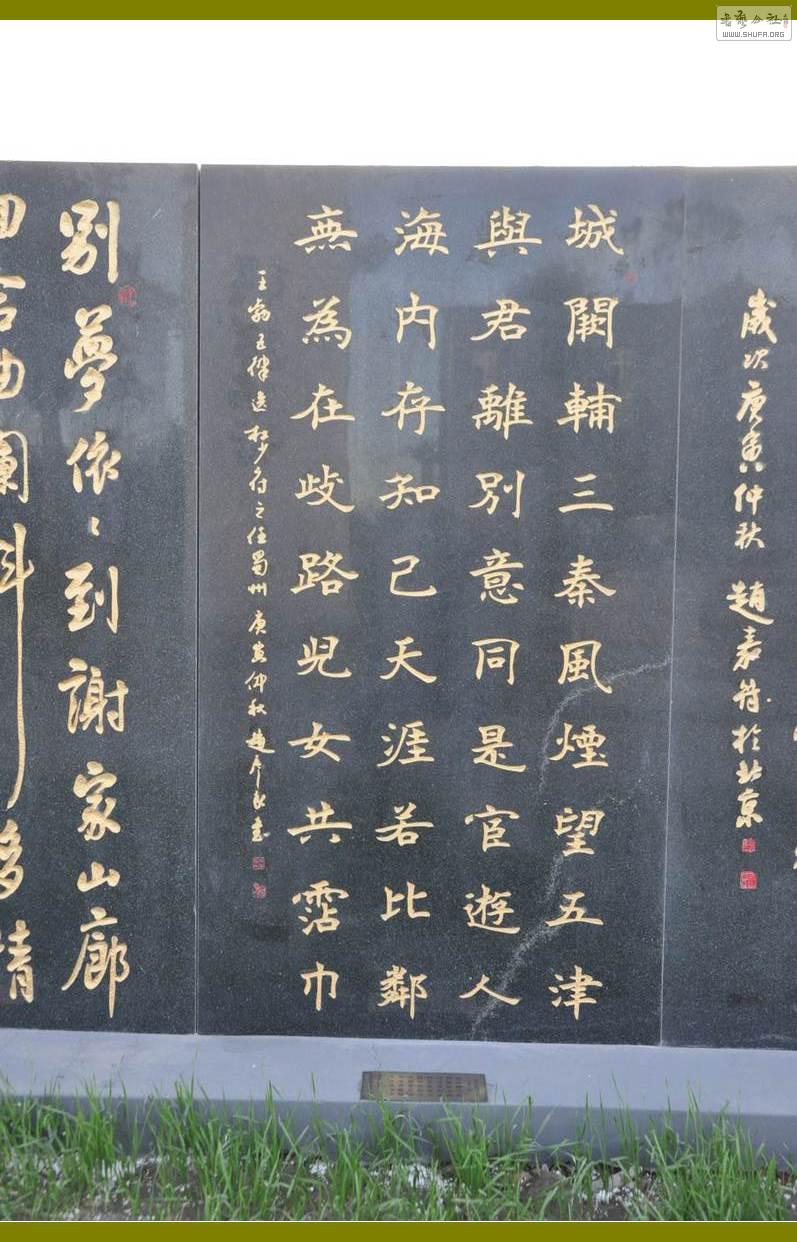 WWW.SHUFA.ORG
歲次庚寅仲秋
於北京
城闕輔三秦風煙望五津
與君離別意同是宦遊人
海內存知己天涯若比鄰
無為在歧路兒女共霑巾
王勃五律送杜少府之任蜀州庚寅仲秋
別夢依〻到謝家山廊
回合曲闌斜
多情